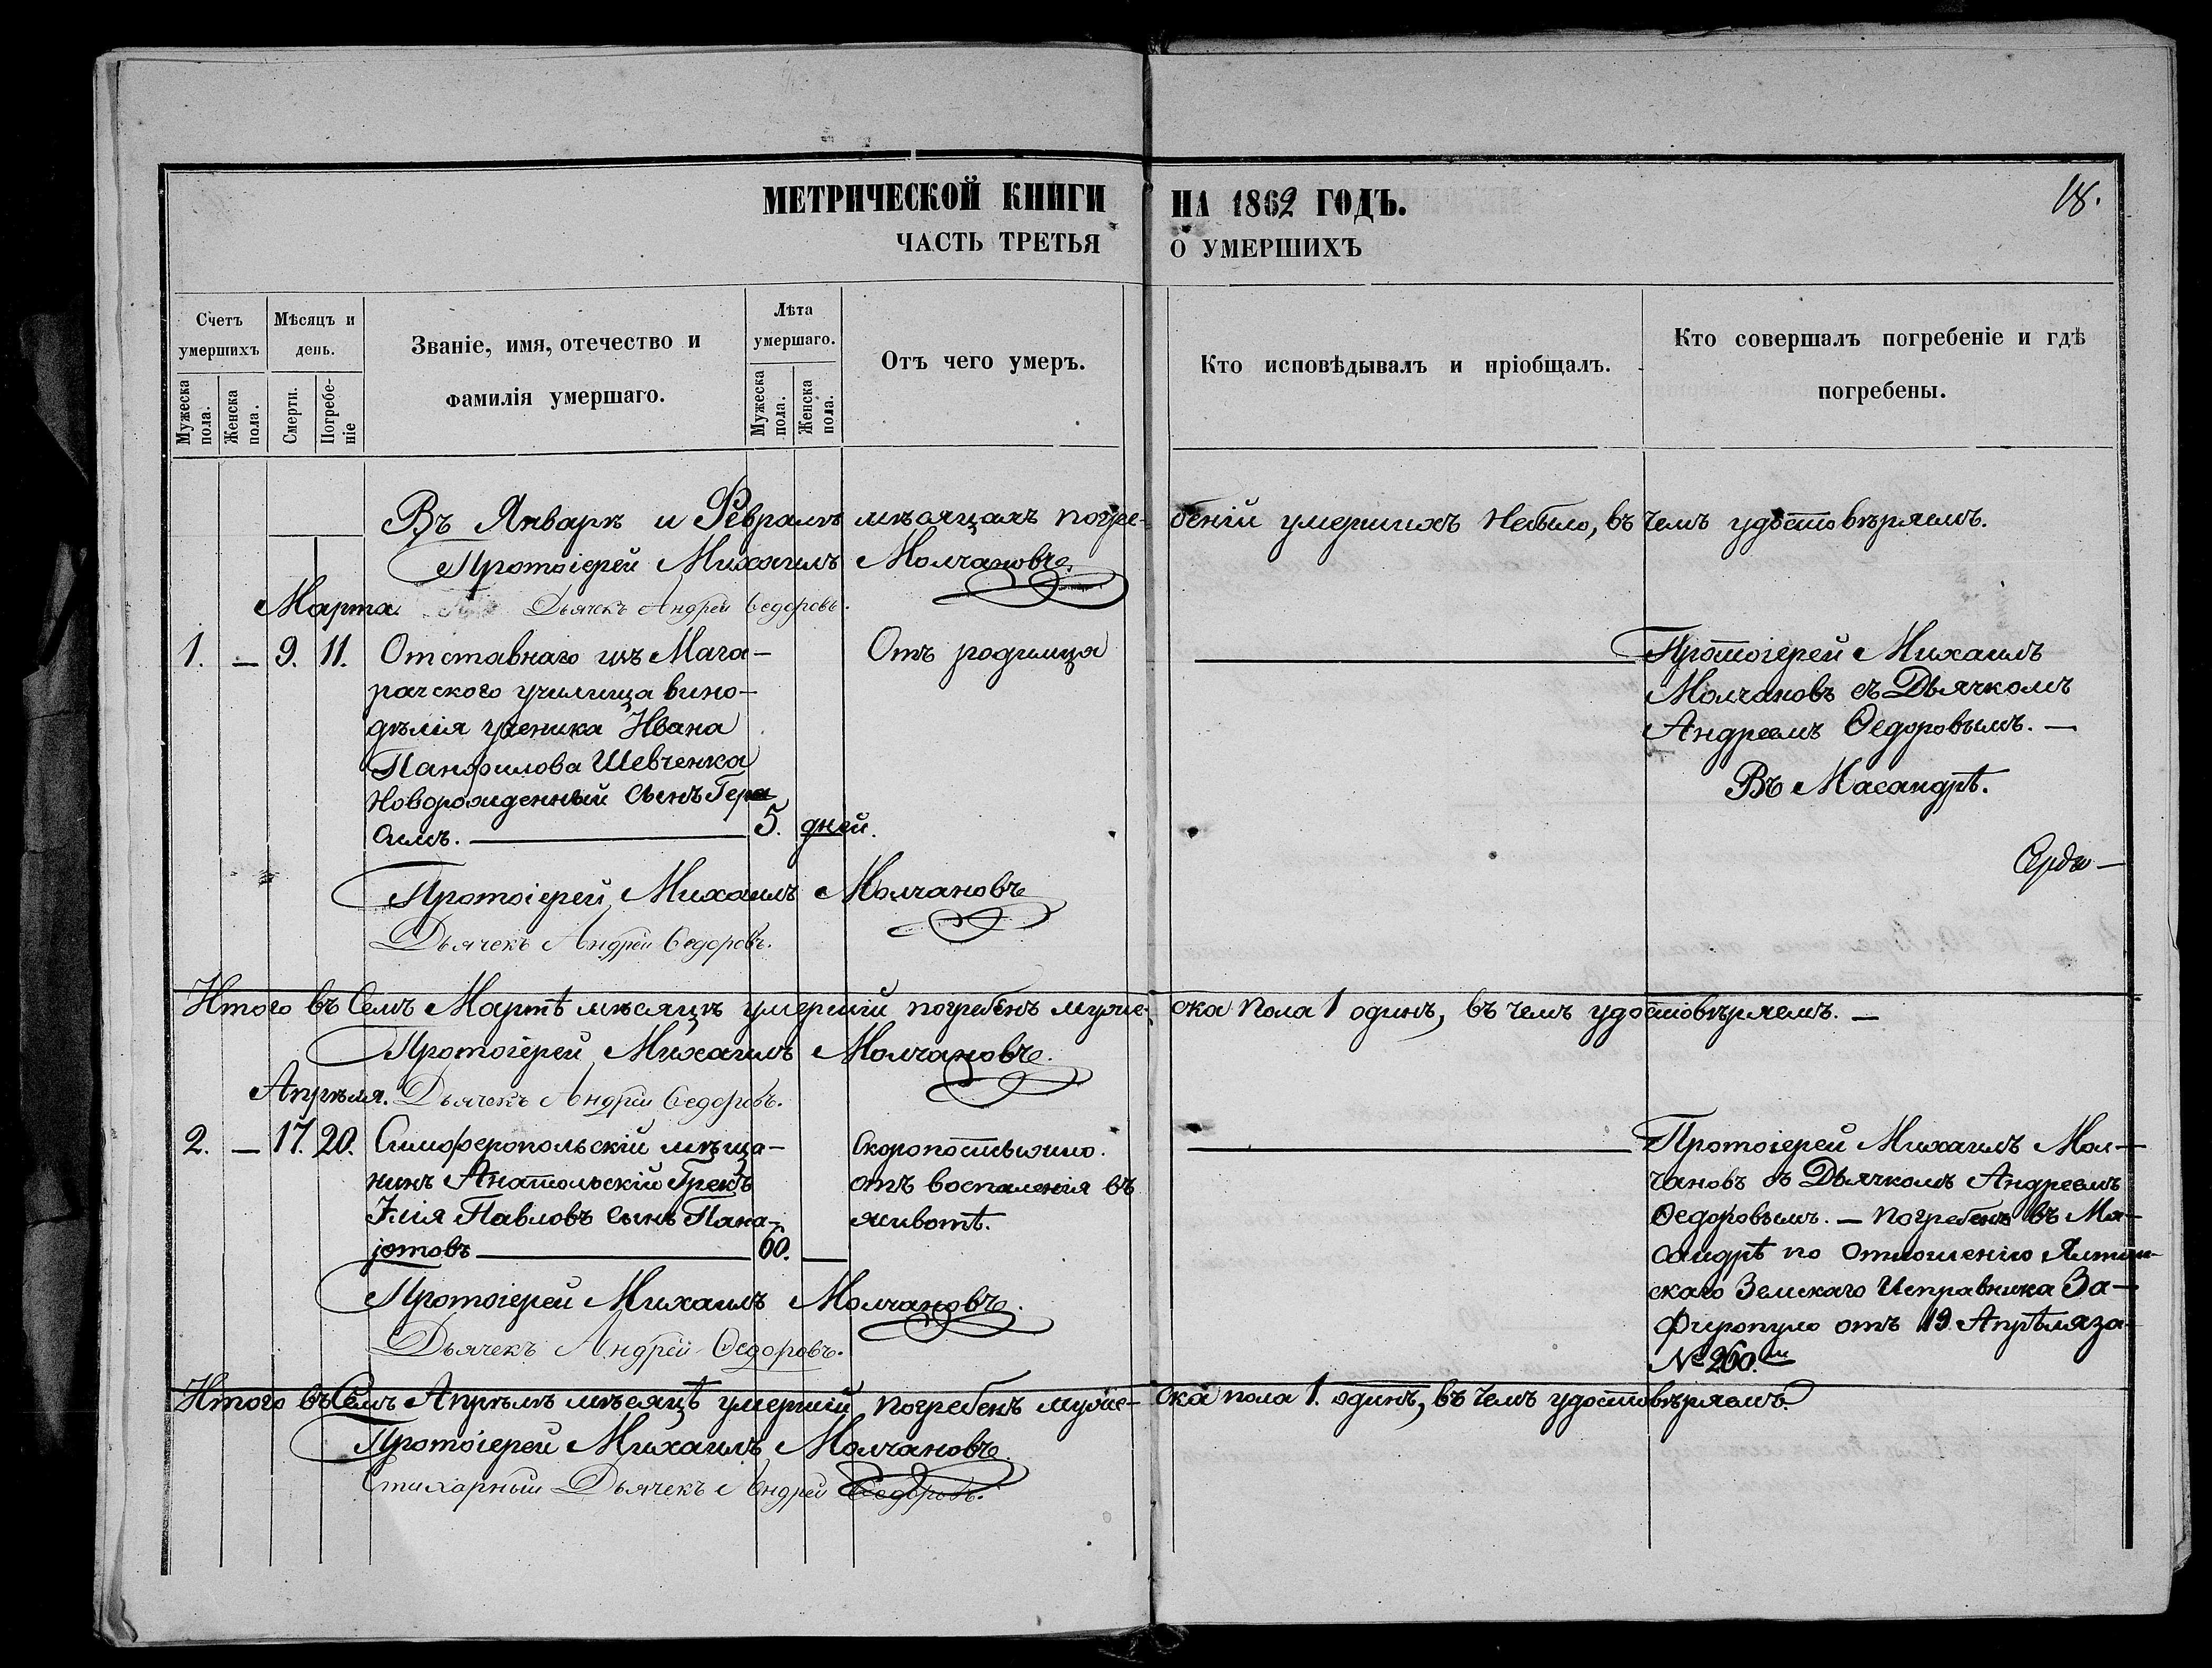 МЕТРИЧЕСКОЙ КНИГИ НА 1862 ГОДЪ.
18.
ЧАСТЬ ТРЕТЬЯ О УМЕРШИХЪ
Счетъ умершихъ
Мужеска пола.
Женска пола.
Мѣсяцъ и день.
Смерти.
Погребе-
ніе
Званіе, имя, отечество и
фамилія умершаго.
Лѣта умершаго.
Мужеска пола.
Женска пола.
Отъ чего умеръ.
Кто исповѣдывалъ и пріобщалъ.
Кто совершалъ погребеніе и гдѣ
погребены.
Въ Январѣ и Февралѣ мѣсяцахъ погре-беній умершихъ небыло, въ чемъ удостовѣряемъ.
Протоіерей Михаилъ Молчановъ.
Дьячекъ Андрей Ѳедоровъ.
Марта
1. — 9. 11. Отставнаго изъ Мага-
рачского училища вино-
дѣлія ученика Ивана
Панфилова Шевченка
новорожденный сынъ Гера
симъ. — 5. дней.
Отъ родимца
Протоіерей Михаилъ
Молчановъ съ Дьячкомъ
Андреемъ Ѳедоровымъ. —
Въ Масандрѣ.
Протоіерей Михаилъ Молчановъ
Дьячекъ Андрей Ѳедоровъ.
Итого въ семъ Мартѣ мѣсяцѣ умершій погребенъ муже-ска пола 1 одинъ, въ чемъ удостовѣряемъ. —
Протоіерей Михаилъ Молчановъ.
Апрѣля. Дьячекъ Андрей Ѳедоровъ.
2. — 17. 20. Симферопольскій мѣща-
нинъ Анатольскій Грекъ
Илія Павловъ сынъ Пана-
јотовъ — 60. —
Скоропостижно.
отъ воспаленія въ
животѣ.
Протоіерей Михаилъ Мол-
чановъ съ Дьячкомъ Андреемъ
Ѳедоровымъ. — погребенъ въ Ма-
сандрѣ по отношенію Ялтин-
скаго Земскаго Исправника За-
фиропуло отъ 19 Апрѣля за
№ 260.
Протоіерей Михаилъ Молчановъ.
Дьячекъ Андрей Ѳедоровъ.
Итого въ семъ Апрѣлѣ мѣсяцѣ умершій погребенъ муже-ска пола 1. одинъ, въ чемъ удостовѣряемъ.
Протоіерей Михаилъ Молчановъ
Стихарный Дьячекъ Андрей Ѳедоровъ.